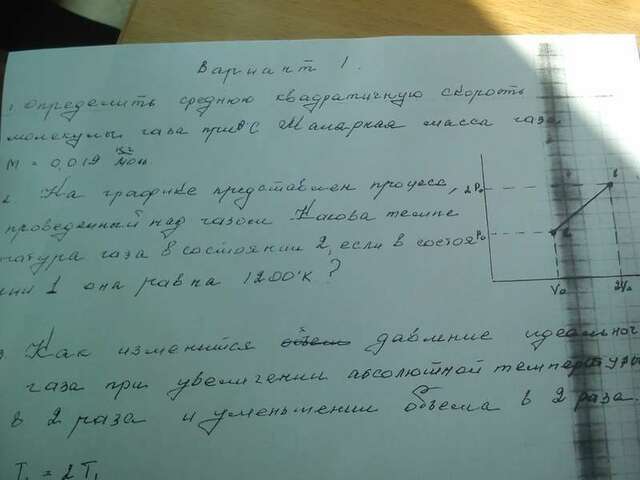 Вариант 1.
1. Определить среднюю квадратичную скорость
молекулы газа при 0°С Малярная масса газа
М = 0,019 кг/моль
2. На графике представлен процесс,
проведенный над газом Какова темпе
ратура газа в состоянии 2, если в состоя
нии 1 она равна 1200°К?
2P₀
1
P₀
2
V₀
2V₀
3 Как изменится давление идеального
газа при увеличении абсолютной температуры
в 2 раза и уменьшении объема в 2 раза.
T₂ = 2T₁